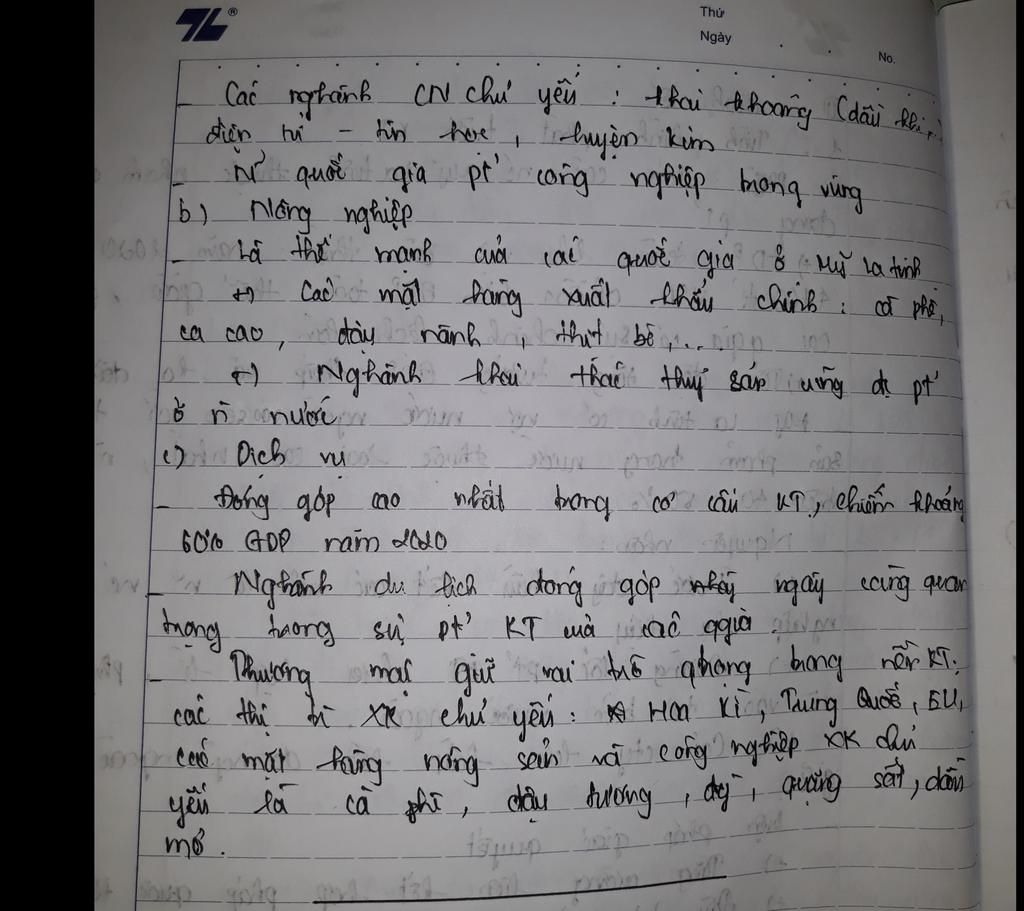 Thứ
Ngày
No.
- Các nghành CN chủ yếu : khai khoáng (dầu khí,
điện tử - tin học, luyện kim
- N² quốc gia pt² công nghiệp trong vùng
b) Nông nghiệp
- Là thế mạnh của các quốc gia ở Mỹ La tinh
+) Các mặt hàng xuất khẩu chính : cà phê,
ca cao, đậu nành, thịt bò, ...
+) Nghành khai thác thuỷ sản cũng đc pt²
ở n̄ nước
c) Dịch vụ
- Đóng góp cao nhất trong cơ cấu KT, chiếm khoảng
60% GDP năm 2020
- Nghành du lịch đóng góp ngày càng quan
trọng trong sự pt² KT của các qgia.
- Thương mại giữ vai trò qtrọng trong nền KT.
các thị tr̀ XK chủ yếu : Hoa Kì, Trung Quốc, EU,
các mặt hàng nông sản và công nghiệp XK chủ
yếu là cà phê, đậu tương, quặng sắt, dầu
mỏ.